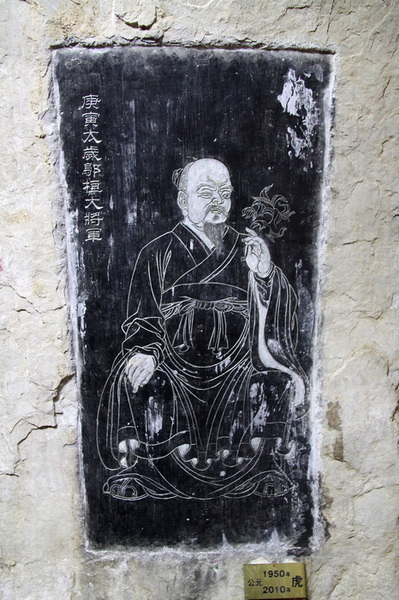 庚寅太歲鄔桓大將軍
公元 1950年 虎
2010年